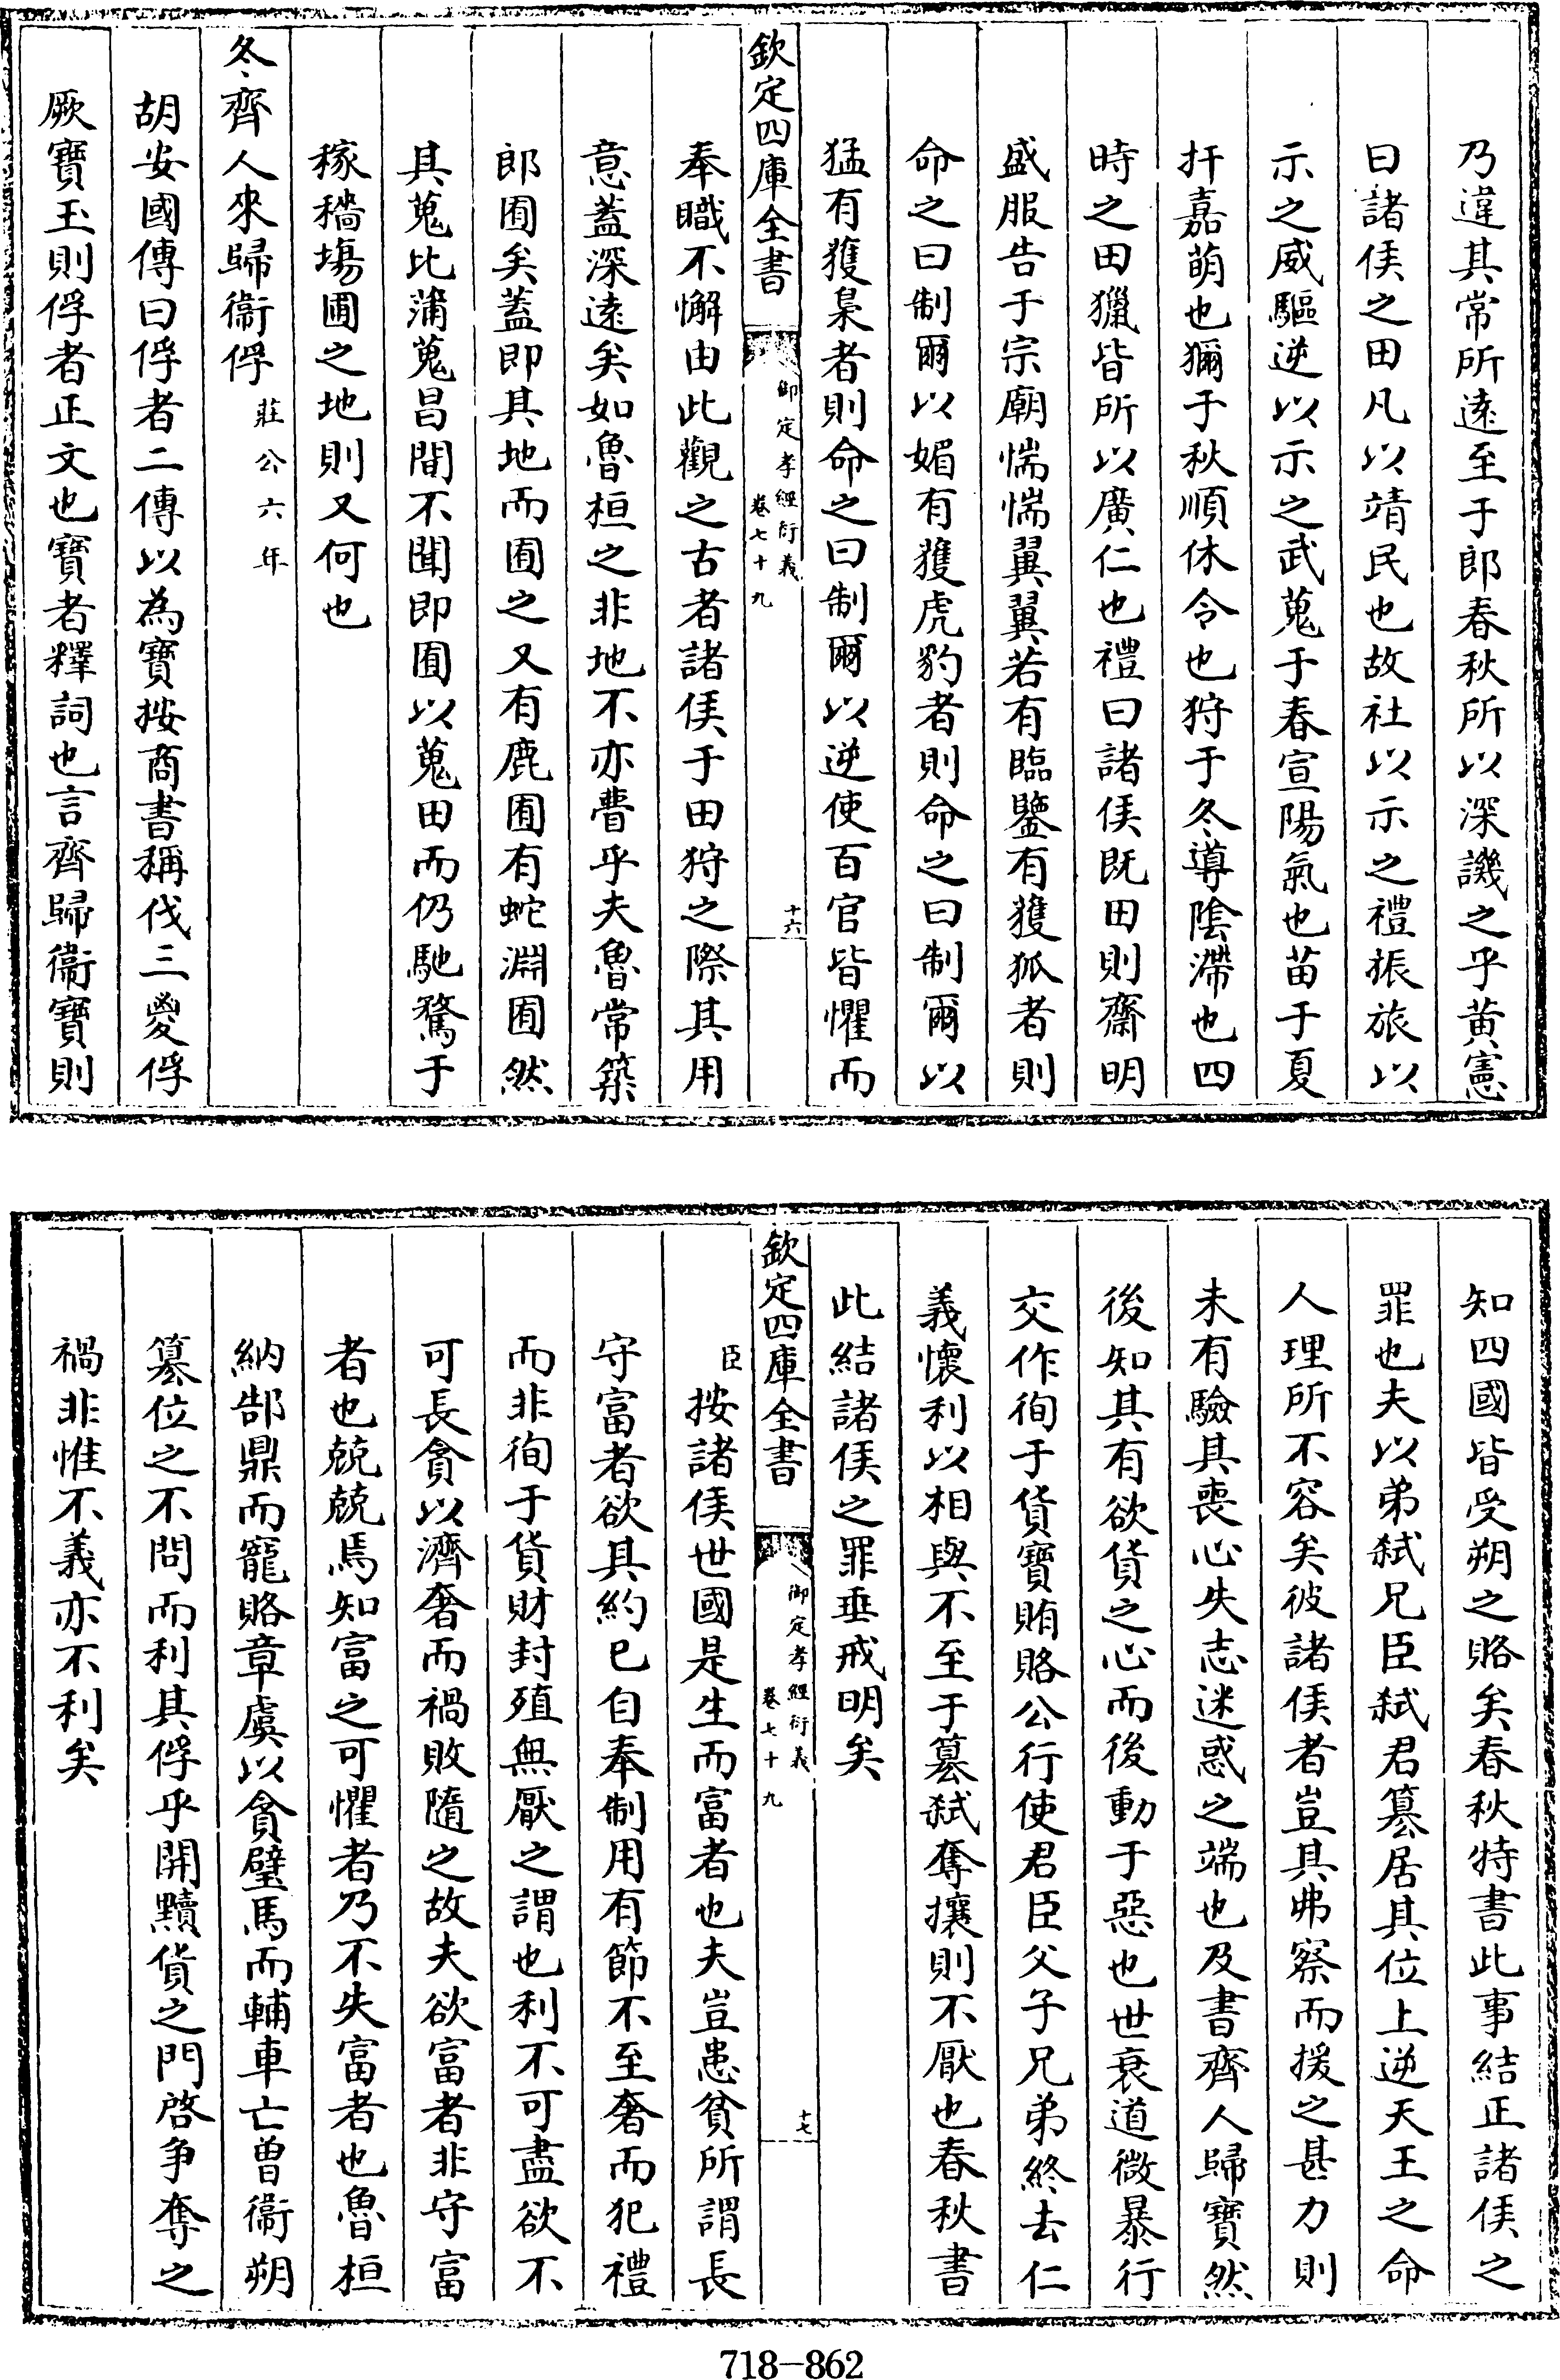 乃違其常所遠至于郎春秋所以深譏之乎黃憲
曰諸侯之田凡以靖民也故社以示之禮振旅以
示之威驅逆以示之武蒐于春宣陽氣也苗于夏
扞嘉萌也獮于秋順休令也狩于冬導陰滯也四
時之田獵皆所以廣仁也禮曰諸侯既田則齋明
盛服告于宗廟惴惴翼翼若有臨鑒有獲狐者則
命之曰制爾以媚有獲虎豹者則命之曰制爾以
猛有獲梟者則命之曰制爾以逆使百官皆懼而
欽定四庫全書
御定孝經衍義
卷七十九
十六
奉職不懈由此觀之古者諸侯于田狩之際其用
意蓋深遠矣如魯桓之非地不亦瞢乎夫魯常築
郎囿矣蓋即其地而囿之又有鹿囿有蛇淵囿然
具蒐比蒲蒐昌間不聞即囿以蒐田而仍馳騖于
稼穡場圃之地則又何也
冬齊人來歸衛俘莊公六年
胡安國傳曰俘者二傳以為寶按商書稱伐三朡俘
厥寶玉則俘者正文也寶者釋詞也言齊歸衛寶則
知四國皆受朔之賂矣春秋特書此事結正諸侯之
罪也夫以弟弑兄臣弑君篡居其位上逆天王之命
人理所不容矣彼諸侯者豈其弗察而援之甚力則
未有驗其喪心失志迷惑之端也及書齊人歸寶然
後知其有欲貨之心而後動于惡也世衰道微暴行
交作徇于貨寶賄賂公行使君臣父子兄弟終去仁
義懷利以相與不至于篡弑奪攘則不厭也春秋書
此結諸侯之罪垂戒明矣
欽定四庫全書
御定孝經衍義
卷七十九
十七
臣按諸侯世國是生而富者也夫豈患貧所謂長
守富者欲其約已自奉制用有節不至奢而犯禮
而非徇于貨財封殖無厭之謂也利不可盡欲不
可長貪以濟奢而禍敗隨之故夫欲富者非守富
者也兢兢焉知富之可懼者乃不失富者也魯桓
納郜鼎而寵賂章虞以貪璧馬而輔車亡曽衛朔
篡位之不問而利其俘乎開黷貨之門啓争奪之
禍非惟不義亦不利矣
718-862